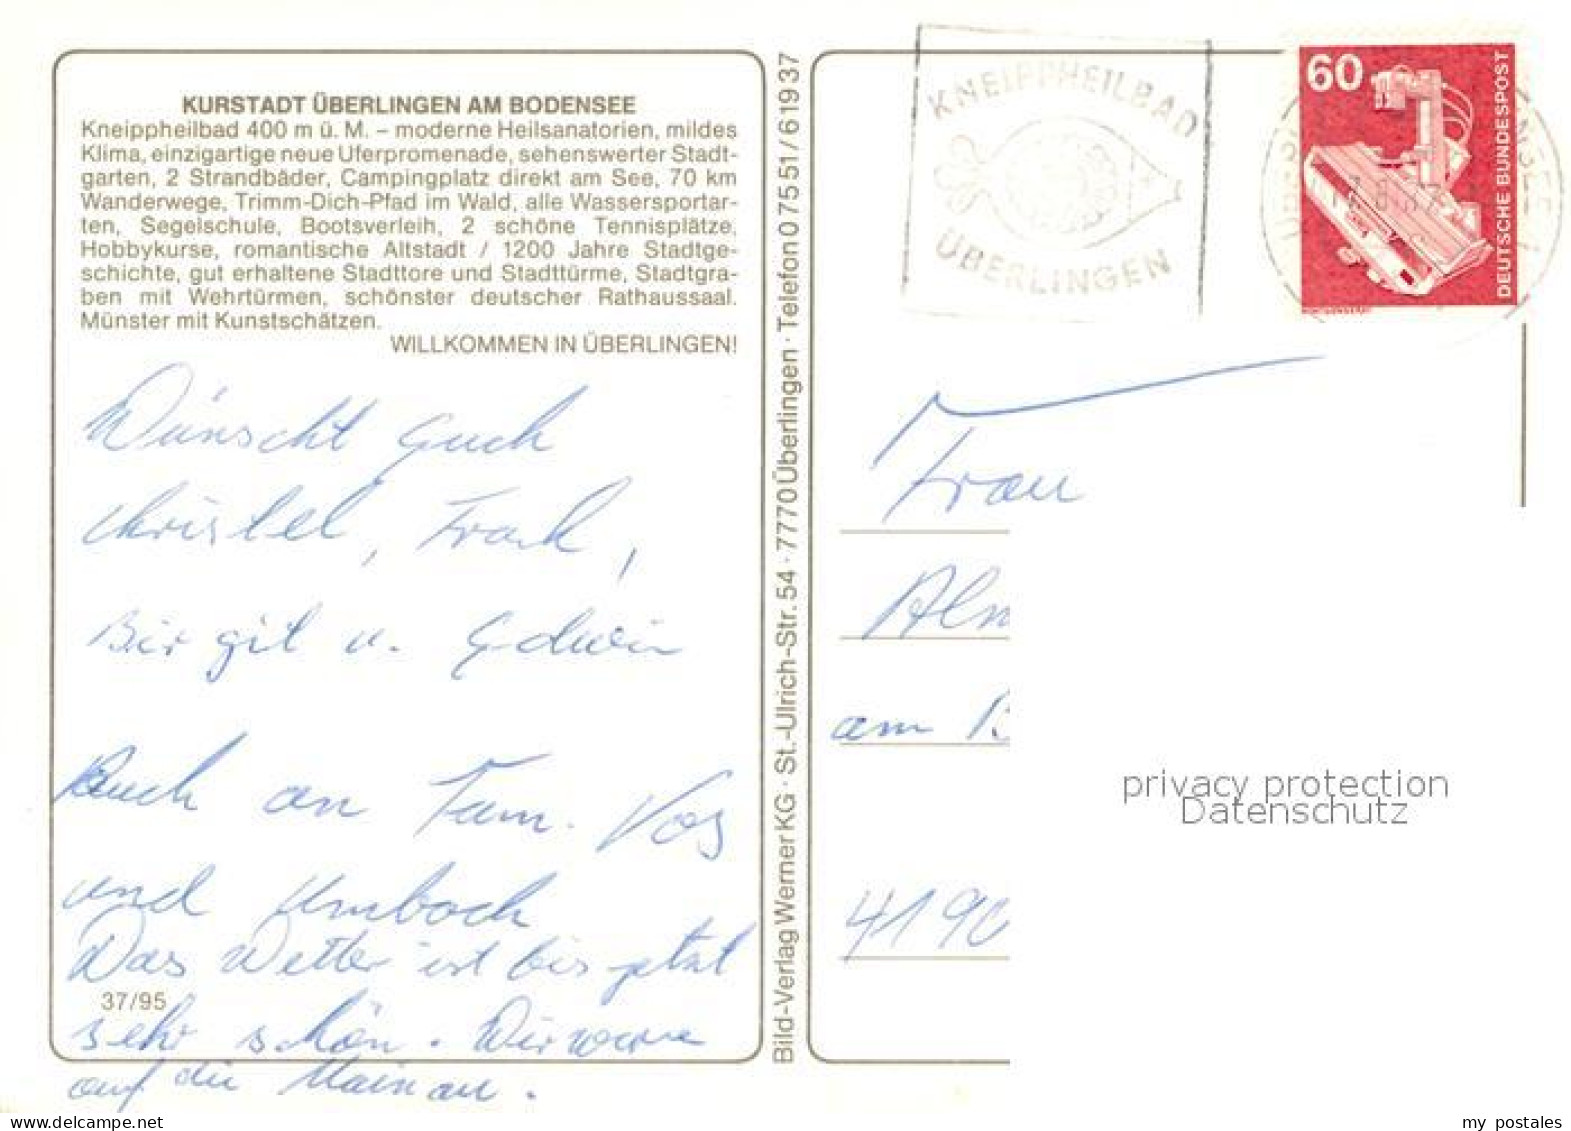 KURSTADT ÜBERLINGEN AM BODENSEE
Kneippheilbad 400 m ü. M. – moderne Heilsanatorien, mildes
Klima, einzigartige neue Uferpromenade, sehenswerter Stadt-
garten, 2 Strandbäder, Campingplatz direkt am See, 70 km
Wanderwege, Trimm-Dich-Pfad im Wald, alle Wassersportar-
ten, Segelschule, Bootsverleih, 2 schöne Tennisplätze,
Hobbykurse, romantische Altstadt / 1200 Jahre Stadtge-
schichte, gut erhaltene Stadttore und Stadttürme, Stadtgra-
ben mit Wehrtürmen, schönster deutscher Rathaussaal.
Münster mit Kunstschätzen.
WILLKOMMEN IN ÜBERLINGEN!
Wünscht Euch
Christel, Frank,
Birgit u. Edwin
Auch an Fam. Vos
und Umbach
Das Wetter ist bis jetzt
37/95
sehr schön. Wir waren
auf die Mainau.
Bild-Verlag Werner KG · St.-Ulrich-Str. 54 · 7770 Überlingen · Telefon 0 75 51 / 6 19 37
KNEIPPHEILBAD
ÜBERLINGEN
60
DEUTSCHE BUNDESPOST
Frau
am
4190
privacy protection
Datenschutz
my postales
www.delcampe.net